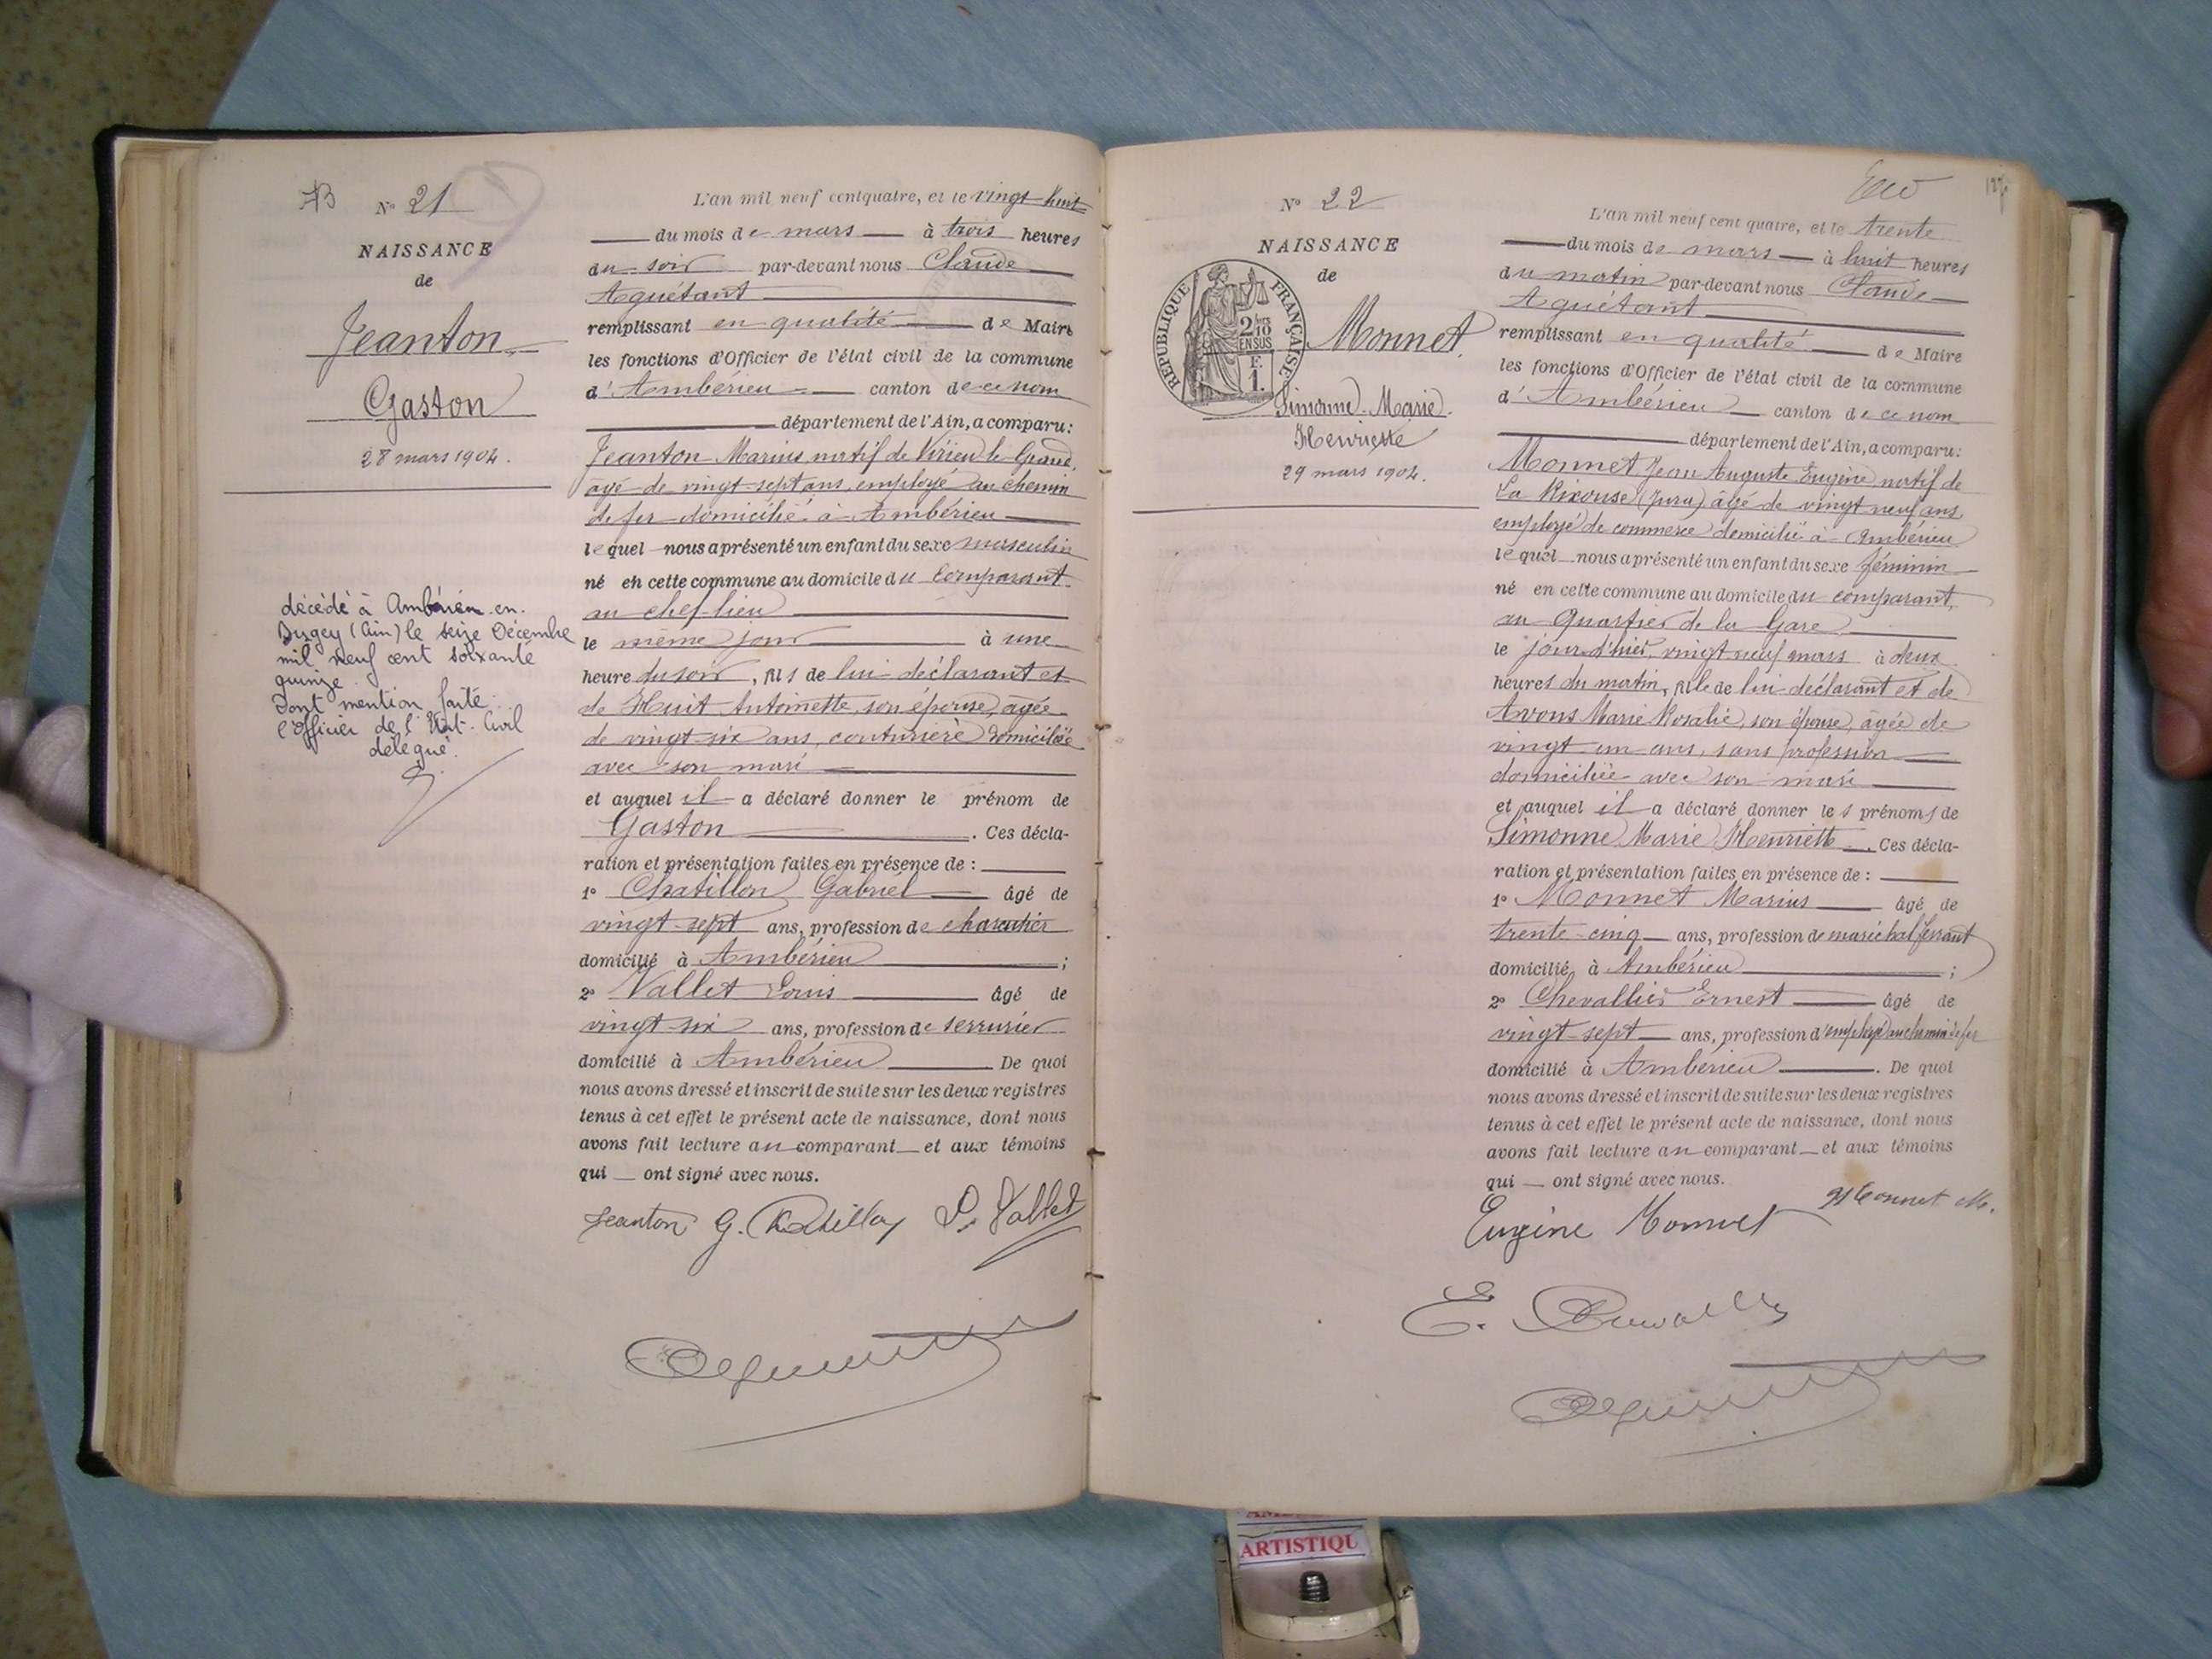 AB
N° 21
NAISSANCE
de
Jeanton
Gaston
28 mars 1904.
décédé à Ambérieu-en-
Bugey (Ain) le seize Décembre
mil neuf cent soixante
quinze.
Dont mention faite.
l'officier de l'Etat-Civil
délégué.
L'an mil neuf cent quatre, et le vingt-huit
du mois de mars à trois heures
du soir par-devant nous Claude
Aguétant
remplissant en qualité de Maire
les fonctions d'Officier de l'état civil de la commune
d'Ambérieu canton de ce nom
département de l'Ain, a comparu:
Jeanton Marius, natif de Virieu le Grand,
âgé de vingt-sept ans, employé au chemin
de fer domicilié à Ambérieu
lequel nous a présenté un enfant du sexe masculin
né en cette commune au domicile du comparant
au chef-lieu
le même jour à une
heure du soir, fils de lui déclarant et
de Huit Antoinette, son épouse, âgée
de vingt-six ans, couturière domiciliée
avec son mari
et auquel il a déclaré donner le prénom de
Gaston. Ces décla-
ration et présentation faites en présence de :
1° Chatillon Gabriel âgé de
vingt-sept ans, profession de charcutier
domicilié à Ambérieu ;
2° Vallet Louis âgé de
vingt-six ans, profession de serrurier
domicilié à Ambérieu De quoi
nous avons dressé et inscrit de suite sur les deux registres
tenus à cet effet le présent acte de naissance, dont nous
avons fait lecture au comparant et aux témoins
qui ont signé avec nous.
Jeanton G. Chatillon L. Vallet
N° 22
NAISSANCE
de
RÉPUBLIQUE FRANÇAISE
2/10
EN SUS
F.
1.
Monnet
Simonne-Marie
Henriette
29 mars 1904.
L'an mil neuf cent quatre, et le trente
du mois de mars à huit heures
du matin par-devant nous Claude
Aguétant
remplissant en qualité de Maire
les fonctions d'Officier de l'état civil de la commune
d'Ambérieu canton de ce nom
département de l'Ain, a comparu:
Monnet Jean Auguste Eugène natif de
La Rixouse (Jura) âgé de vingt neuf ans,
employé de commerce domicilié à Ambérieu
lequel nous a présenté un enfant du sexe féminin
né en cette commune au domicile du comparant,
au Quartier de la Gare
le jour d'hier vingt neuf mars à deux
heures du matin, fille de lui déclarant et de
Avons Marie Rosalie, son épouse, âgée de
vingt un ans, sans profession
domiciliée avec son mari
et auquel il a déclaré donner les prénoms de
Simonne Marie Henriette. Ces décla-
ration et présentation faites en présence de :
1° Monnet Marius âgé de
trente-cinq ans, profession de maréchal ferrant
domicilié à Ambérieu ;
2° Chevallier Ernest âgé de
vingt-sept ans, profession d'employé au chemin de fer
domicilié à Ambérieu. De quoi
nous avons dressé et inscrit de suite sur les deux registres
tenus à cet effet le présent acte de naissance, dont nous
avons fait lecture au comparant et aux témoins
qui ont signé avec nous.
Eugène Monnet Monnet M.
ARTISTIQU